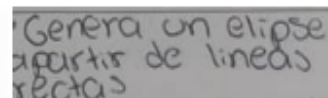 Genera un elipse
apartir de lineas
rectas